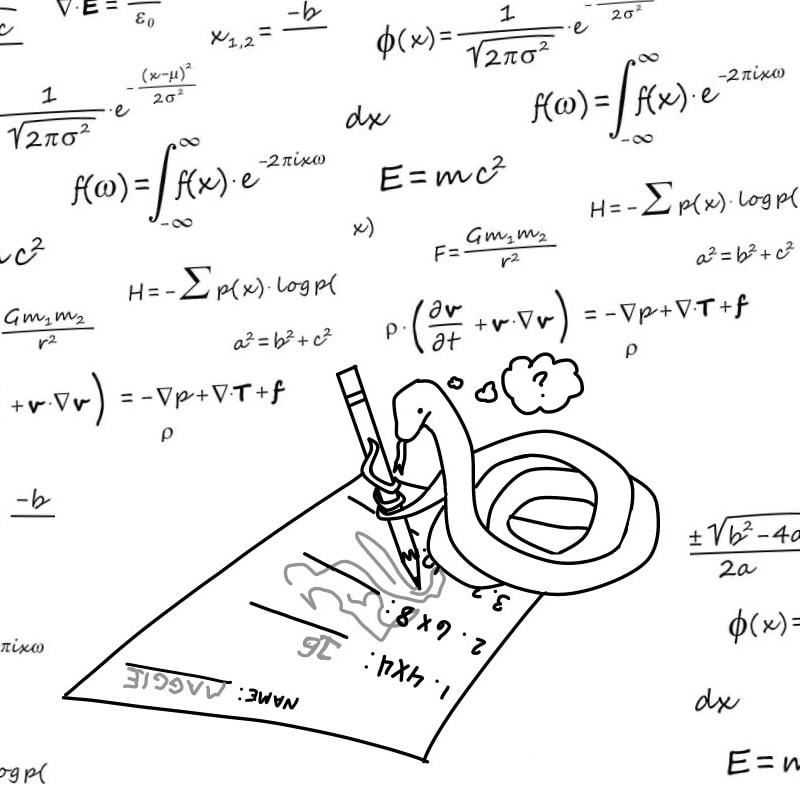 c
∇·E = / ε₀
x₁,₂ = -b
ϕ(x) = 1/√2πσ² · e^-/2σ²
1/√2πσ² · e^-(x-μ)²/2σ²
dx
f(ω) = ∫_-∞^∞ f(x) · e^-2πixω
f(ω) = ∫_-∞^∞ f(x) · e^-2πixω
E = mc²
H = -∑ p(x) · log p(
x)
F = Gm₁m₂/r²
a² = b² + c²
c²
H = -∑ p(x) · log p(
Gm₁m₂/r²
a² = b² + c²
ρ · (∂v/∂t + v·∇v) = -∇p + ∇·T + f
ρ
+ v·∇v) = -∇p + ∇·T + f
ρ
?
-b
± √b² - 4a / 2a
NAME: MAGGIE
1. 4X4: 16
2. 6 x 8:
3. 7
πixω
ϕ(x) =
dx
og p(
E = m